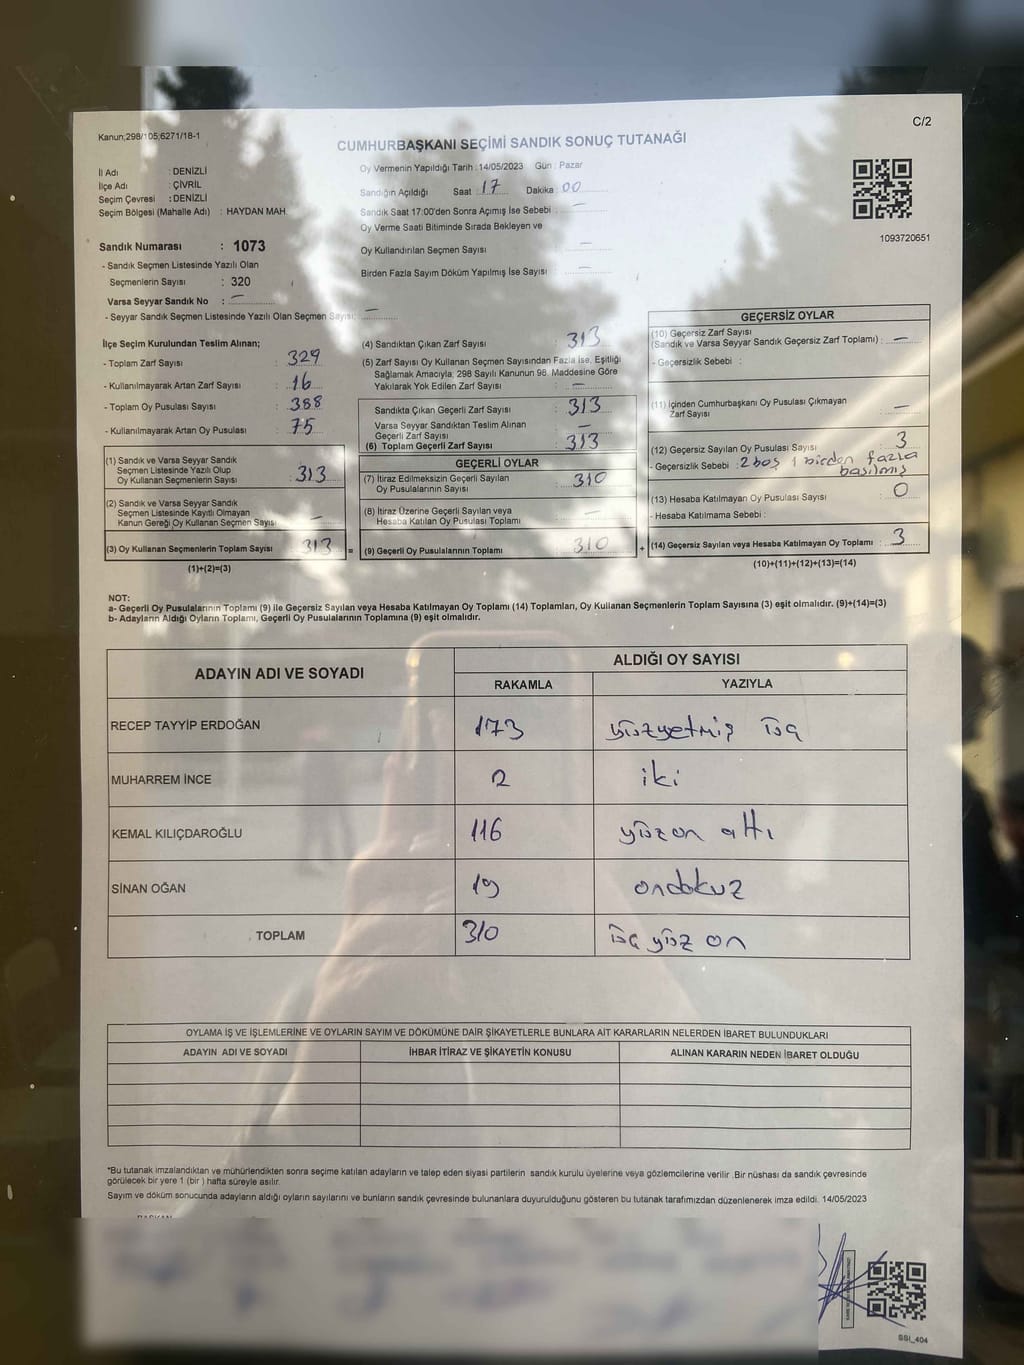 Kanun;298/105;6271/18-1
C/2
CUMHURBAŞKANI SEÇİMİ SANDIK SONUÇ TUTANAĞI
İl Adı : DENİZLİ
İlçe Adı : ÇİVRİL
Seçim Çevresi : DENİZLİ
Seçim Bölgesi (Mahalle Adı) : HAYDAN MAH.
Oy Vermenin Yapıldığı Tarih : 14/05/2023 Gün : Pazar
Sandığın Açıldığı Saat 17 Dakika : 00
Sandık Saat 17:00'den Sonra Açımış İse Sebebi : —
Oy Verme Saati Bitiminde Sırada Bekleyen ve
Oy Kullandırılan Seçmen Sayısı —
Birden Fazla Sayım Döküm Yapılmış İse Sayısı —
1093720651
Sandık Numarası : 1073
- Sandık Seçmen Listesinde Yazılı Olan
Seçmenlerin Sayısı : 320
Varsa Seyyar Sandık No : —
- Seyyar Sandık Seçmen Listesinde Yazılı Olan Seçmen Sayısı: —
İlçe Seçim Kurulundan Teslim Alınan;
- Toplam Zarf Sayısı : 329
- Kullanılmayarak Artan Zarf Sayısı : 16
- Toplam Oy Pusulası Sayısı : 388
- Kullanılmayarak Artan Oy Pusulası : 75
(1) Sandık ve Varsa Seyyar Sandık
Seçmen Listesinde Yazılı Olup
Oy Kullanan Seçmenlerin Sayısı : 313
(2) Sandık ve Varsa Seyyar Sandık
Seçmen Listesinde Kayıtlı Olmayan
Kanun Gereği Oy Kullanan Seçmen Sayısı —
(3) Oy Kullanan Seçmenlerin Toplam Sayısı : 313 =
(1)+(2)=(3)
(4) Sandıktan Çıkan Zarf Sayısı : 313
(5) Zarf Sayısı Oy Kullanan Seçmen Sayısından Fazla İse, Eşitliği
Sağlamak Amacıyla, 298 Sayılı Kanunun 98. Maddesine Göre
Yakılarak Yok Edilen Zarf Sayısı : —
Sandıkta Çıkan Geçerli Zarf Sayısı : 313
Varsa Seyyar Sandıktan Teslim Alınan
Geçerli Zarf Sayısı : —
(6) Toplam Geçerli Zarf Sayısı : 313
GEÇERLİ OYLAR
(7) İtiraz Edilmeksizin Geçerli Sayılan
Oy Pusulalarının Sayısı : 310
(8) İtiraz Üzerine Geçerli Sayılan veya
Hesaba Katılan Oy Pusulası Toplamı : —
(9) Geçerli Oy Pusulalarının Toplamı : 310 +
GEÇERSİZ OYLAR
(10) Geçersiz Zarf Sayısı
(Sandık ve Varsa Seyyar Sandık Geçersiz Zarf Toplamı) : —
- Geçersizlik Sebebi :
(11) İçinden Cumhurbaşkanı Oy Pusulası Çıkmayan
Zarf Sayısı : —
(12) Geçersiz Sayılan Oy Pusulası Sayısı : 3
- Geçersizlik Sebebi : 2 boş 1 birden fazla
basılmış
(13) Hesaba Katılmayan Oy Pusulası Sayısı : 0
- Hesaba Katılmama Sebebi :
(14) Geçersiz Sayılan veya Hesaba Katılmayan Oy Toplamı : 3
(10)+(11)+(12)+(13)=(14)
NOT:
a- Geçerli Oy Pusulalarının Toplamı (9) ile Geçersiz Sayılan veya Hesaba Katılmayan Oy Toplamı (14) Toplamları, Oy Kullanan Seçmenlerin Toplam Sayısına (3) eşit olmalıdır. (9)+(14)=(3)
b- Adayların Aldığı Oyların Toplamı, Geçerli Oy Pusulalarının Toplamına (9) eşit olmalıdır.
ADAYIN ADI VE SOYADI
ALDIĞI OY SAYISI
RAKAMLA YAZIYLA
RECEP TAYYİP ERDOĞAN 173 yüzyetmiş üç
MUHARREM İNCE 2 iki
KEMAL KILIÇDAROĞLU 116 yüz on altı
SİNAN OĞAN 19 ondokuz
TOPLAM 310 üç yüz on
OYLAMA İŞ VE İŞLEMLERİNE VE OYLARIN SAYIM VE DÖKÜMÜNE DAİR ŞİKAYETLERLE BUNLARA AİT KARARLARIN NELERDEN İBARET BULUNDUKLARI
ADAYIN ADI VE SOYADI İHBAR İTİRAZ VE ŞİKAYETİN KONUSU ALINAN KARARIN NEDEN İBARET OLDUĞU
*Bu tutanak imzalandıktan ve mühürlendikten sonra seçime katılan adayların ve talep eden siyasi partilerin sandık kurulu üyelerine veya gözlemcilerine verilir .Bir nüshası da sandık çevresinde
görülecek bir yere 1 (bir ) hafta süreyle asılır.
Sayım ve döküm sonucunda adayların aldığı oyların sayılarını ve bunların sandık çevresinde bulunanlara duyurulduğunu gösteren bu tutanak tarafımızdan düzenlenerek imza edildi. 14/05/2023
SSI_404